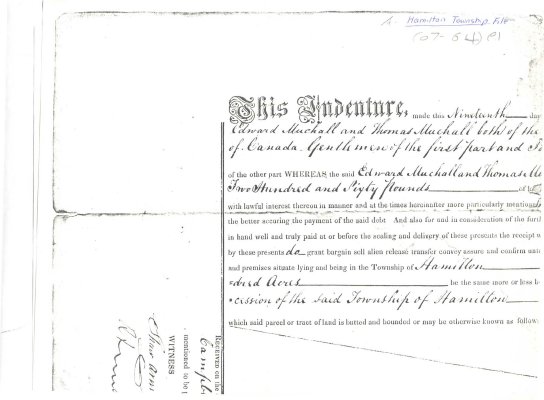 Hamilton Township File
(07-64) 01
This Indenture, made this Nineteenth day
Edward Muchall and Thomas Muchall both of the
of Canada Gentlemen of the first part and
of the other part WHEREAS the said Edward Muchall and Thomas Mu
Two Hundred and Sixty Pounds of
with lawful interest thereon in manner and at the times hereinafter more particularly mentione
the better securing the payment of the said debt And also for and in consideration of the furt
in hand well and truly paid at or before the sealing and delivery of these presents the receipt w
by these presents do grant bargain sell alien release transfer convey assure and confirm unt
and premises situate lying and being in the Township of Hamilton
dred Acres be the same more or less b
cession of the said Township of Hamilton
which said parcel or tract of land is butted and bounded or may be otherwise known as follow
Received on the
Campb
mentioned to be p
WITNESS